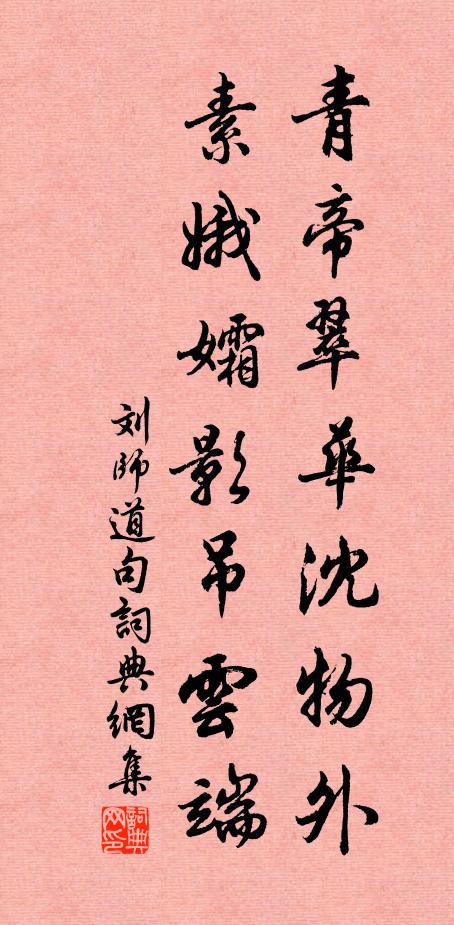 青帝翠華沈物外
素娥孀影吊雲端
刘師道句詞典網集
詞典网印